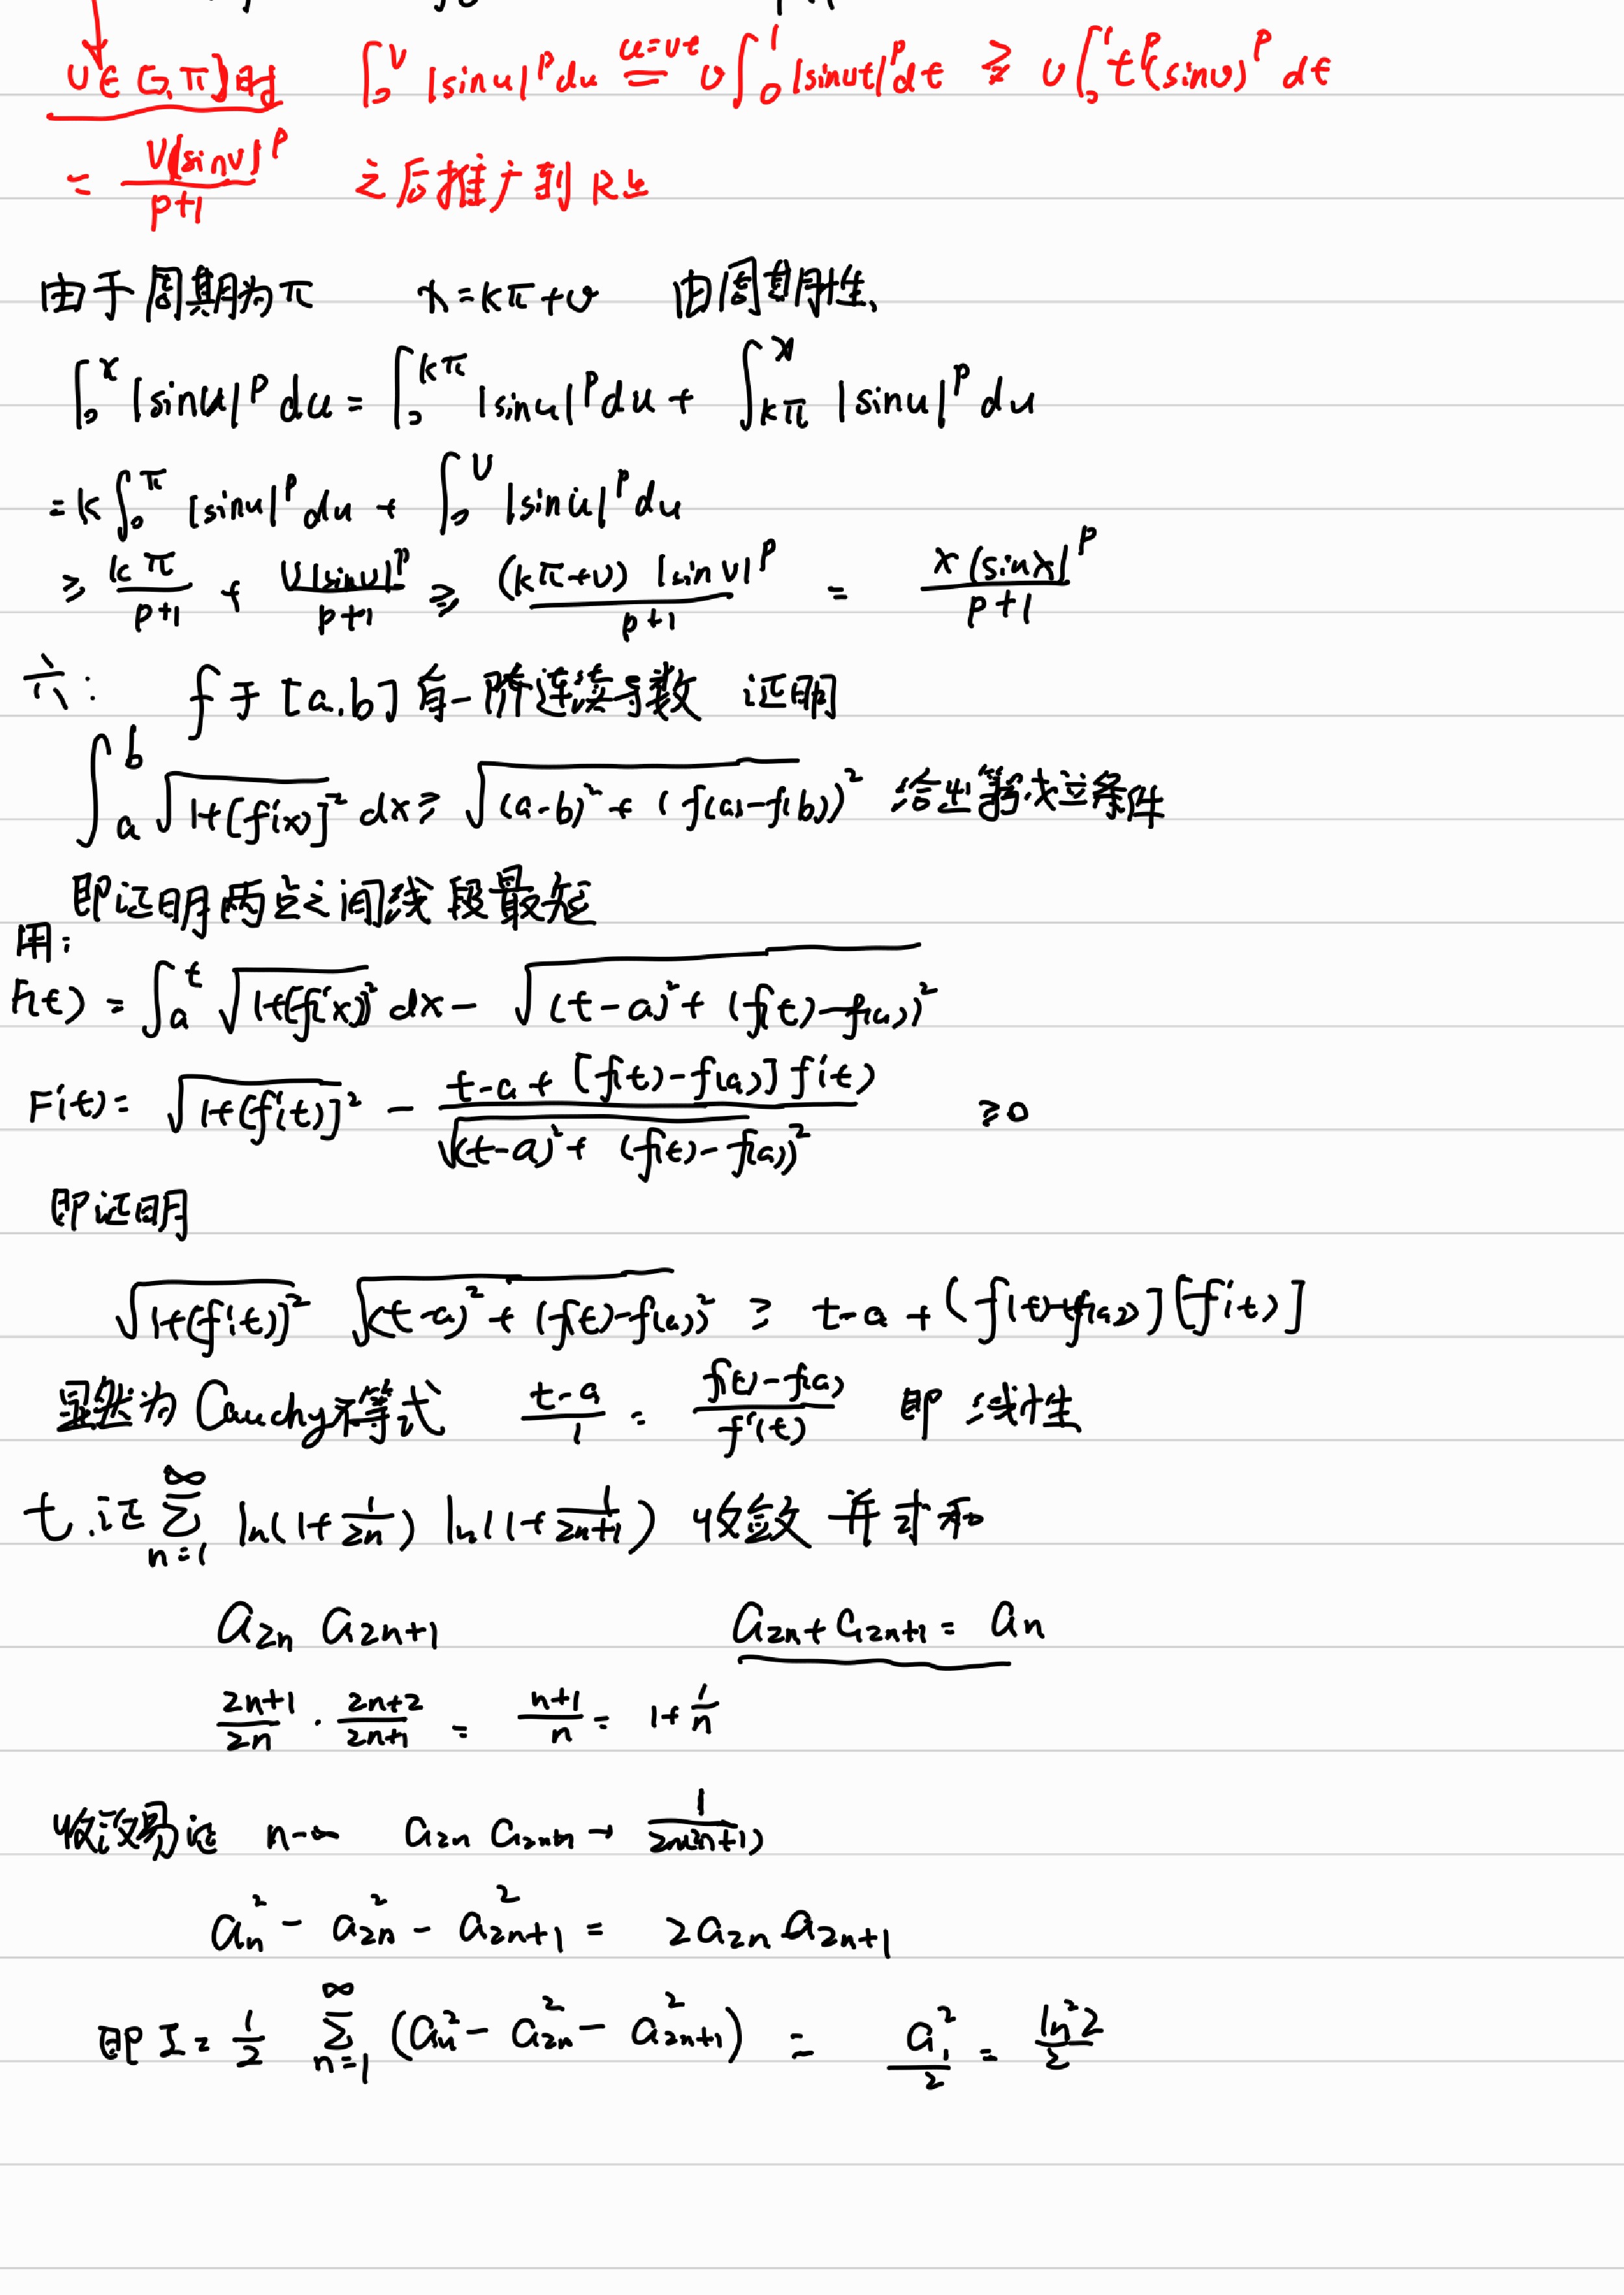 U∈[0,π]时 ∫₀^v |sinu|^p du u=vt = v∫₀^1 |sinvt|^p dt ≥ v∫₀^1 t^p(sinv)^p dt
= v|sinv|^p / (p+1) 之后推广到R上
由于周期为π x=kπ+v 由周期性、
∫₀^x |sinu|^p du = ∫₀^{kπ} |sinu|^p du + ∫_{kπ}^x |sinu|^p du
=k∫₀^π |sinu|^p du + ∫₀^v |sinu|^p du
≥ kπ/(p+1) + v|sinv|^p/(p+1) ≥ (kπ+v)|sinv|^p/(p+1) = x|sinx|^p/(p+1)
六: f于[a.b]有一阶连续导数 证明
∫_a^b √(1+[f'(x)]²) dx ≥ √((a-b)²+(f(a)-f(b))²) 给出等号成立条件
即证明两点之间线段最短
用:
F(t) = ∫_a^t √(1+[f'(x)]²) dx - √((t-a)²+(f(t)-f(a))²)
F'(t)= √(1+[f'(t)]²) - (t-a+[f(t)-f(a)]f'(t)) / √((t-a)²+(f(t)-f(a))²) ≥0
即证明
√(1+[f'(t)]²) √((t-a)²+(f(t)-f(a))²) ≥ t-a+[f(t)-f(a)][f'(t)]
显然为Cauchy不等式 (t-a)/1 = (f(t)-f(a))/f'(t) 即 线性
七.证 ∑_{n=1}^∞ ln(1+1/2n) ln(1+1/(2n+1)) 收敛 并求和
a_{2n} a_{2n+1} a_{2n}+a_{2n+1}=a_n
(2n+1)/2n · (2n+2)/(2n+1) = (n+1)/n = 1+1/n
收敛易证 n→∞ a_{2n} a_{2n+1} → 1/(2n(2n+1))
a_n² - a_{2n}² - a_{2n+1}² = 2a_{2n} a_{2n+1}
即 I = 1/2 ∑_{n=1}^∞ (a_n² - a_{2n}² - a_{2n+1}²) = a_1²/2 = ln²2/2